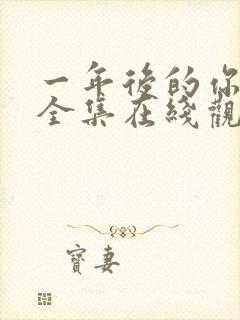 一年後的你
全集在綫觀
寶妻